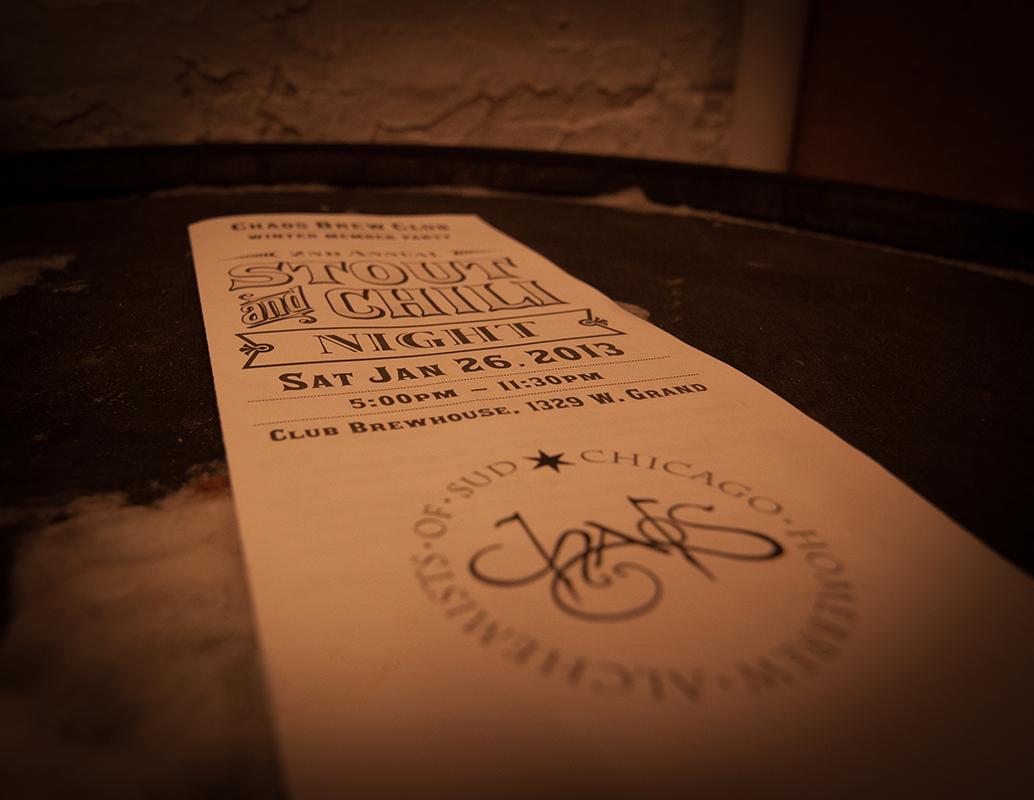 CHAOS BREW CLUB
WINTER MEMBER PARTY
2ND ANNUAL
STOUT
and CHILI
NIGHT
SAT JAN 26, 2013
5:00PM – 11:30PM
CLUB BREWHOUSE, 1329 W. GRAND
CHICAGO · HOMEBREW · ALCHEMISTS · OF · SUD
CHAOS